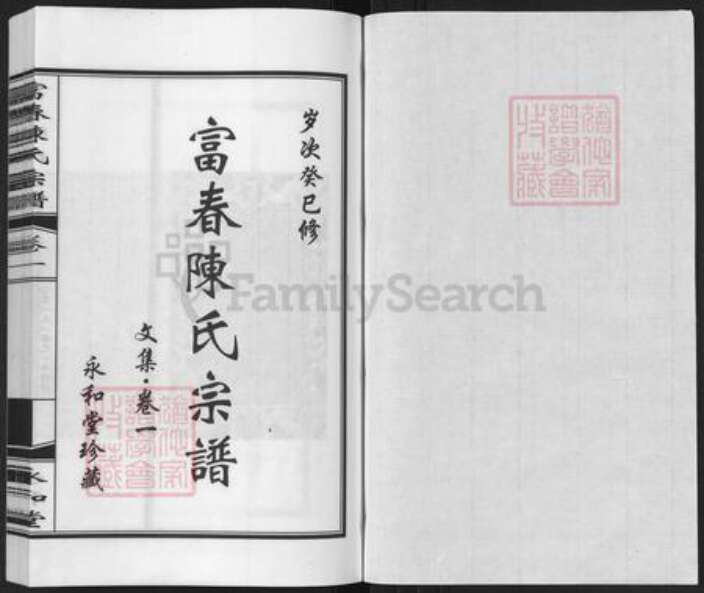 岁次癸巳修
富春陳氏宗譜
文集·卷一
永和堂珍藏
富春陳氏宗譜
卷一
永和堂
FamilySearch